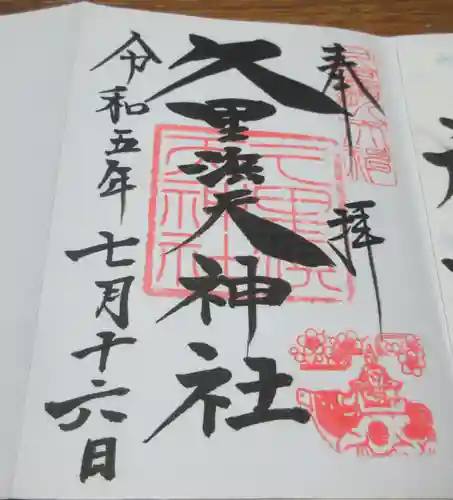 奉拝
久里浜天神社
令和五年七月十六日